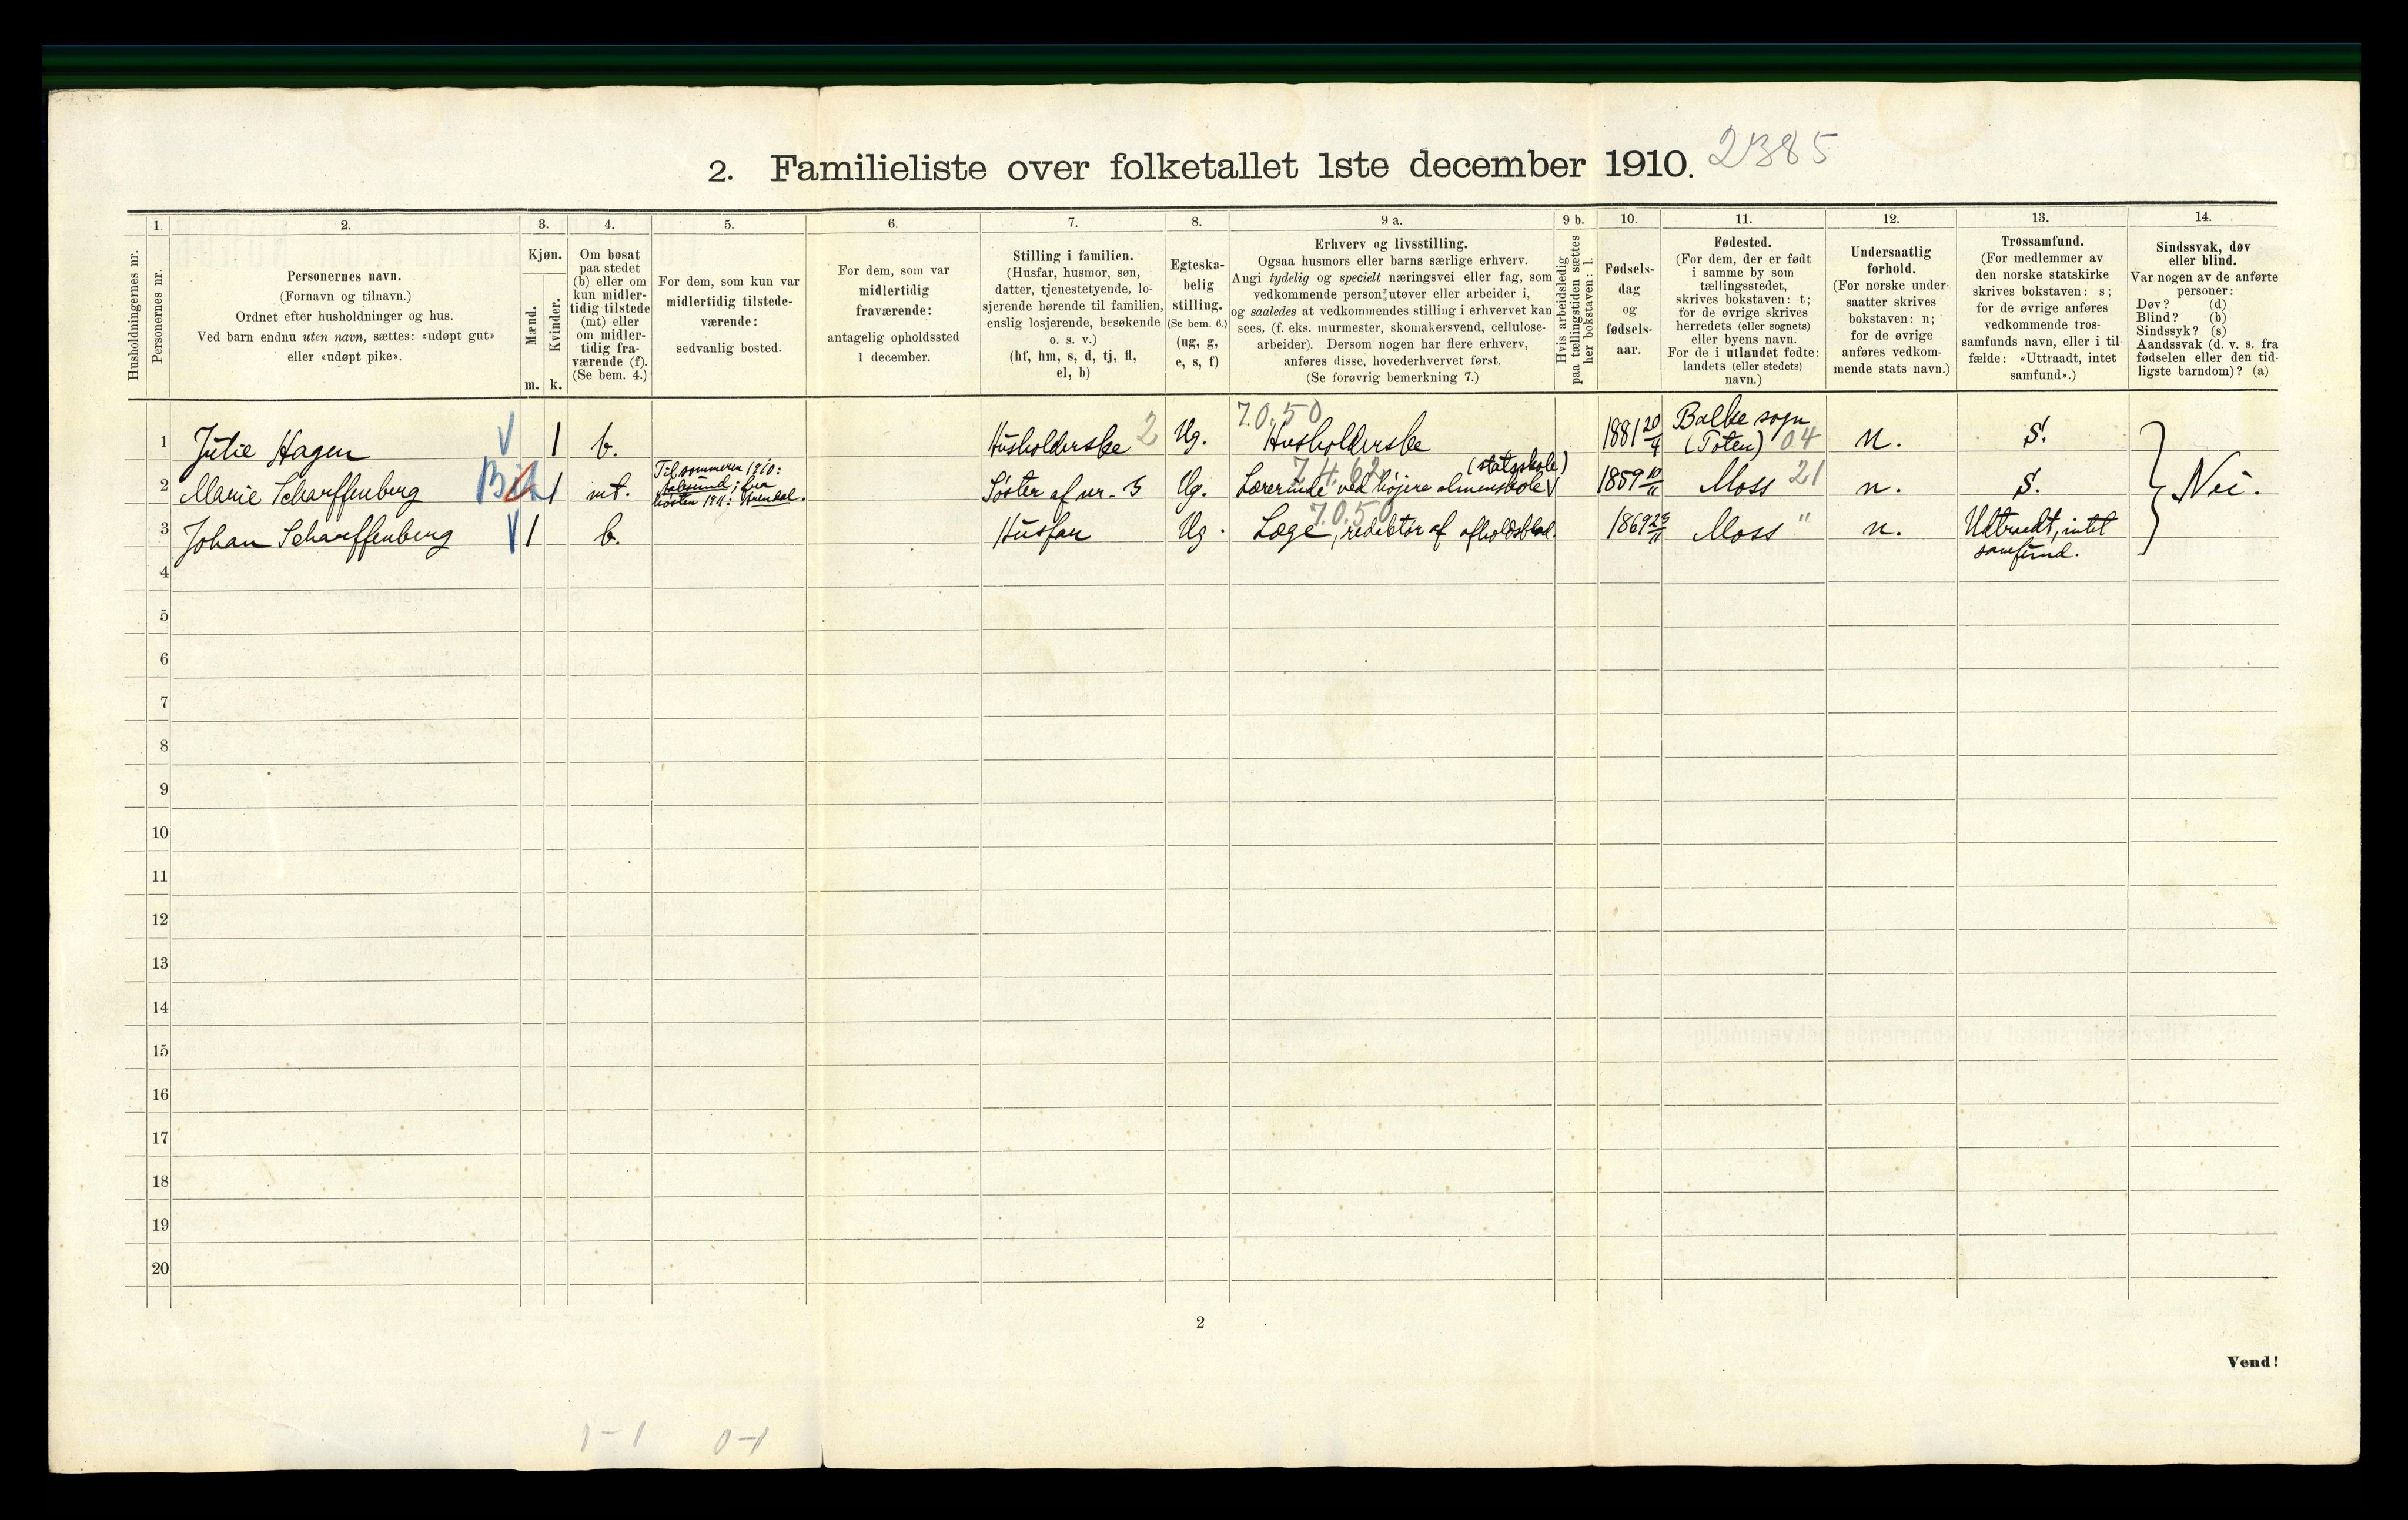 2. Familieliste over folketallet 1ste december 1910. 2385
Husholdningernes nr.
1.
Personernes nr.
2.
Personernes navn.
(Fornavn og tilnavn.)
Ordnet efter husholdninger og hus.
Ved barn endnu uten navn, sættes: «udøpt gut»
eller «udøpt pike».
3.
Kjøn.
Mænd.
Kvinder.
m. k.
4.
Om bosat
paa stedet
(b) eller om
kun midler-
tidig tilstede
(mt) eller
om midler-
tidig fra-
værende (f).
(Se bem. 4.)
5.
For dem, som kun var
midlertidig tilstede-
værende:
sedvanlig bosted.
6.
For dem, som var
midlertidig
fraværende:
antagelig opholdssted
1 december.
7.
Stilling i familien.
(Husfar, husmor, søn,
datter, tjenestetyende, lo-
sjerende hørende til familien,
enslig losjerende, besøkende
o. s. v.)
(hf, hm, s, d, tj, fl,
el, b)
8.
Egteska-
belig
stilling.
(Se bem. 6.)
(ug, g,
e, s, f)
9 a.
Erhverv og livsstilling.
Ogsaa husmors eller barns særlige erhverv.
Angi tydelig og specielt næringsvei eller fag, som
vedkommende person utøver eller arbeider i,
og saaledes at vedkommendes stilling i erhvervet kan
sees, (f. eks. murmester, skomakersvend, cellulose-
arbeider). Dersom nogen har flere erhverv,
anføres disse, hovederhvervet først.
(Se forøvrig bemerkning 7.)
9 b.
Hvis arbeidsledig
paa tællingstiden sættes
her bokstaven: l.
10.
Fødsels-
dag
og
fødsels-
aar.
11.
Fødested.
(For dem, der er født
i samme by som
tællingsstedet,
skrives bokstaven: t;
for de øvrige skrives
herredets (eller sognets)
eller byens navn.
For de i utlandet fødte:
landets (eller stedets)
navn.)
12.
Undersaatlig
forhold.
(For norske under-
saatter skrives
bokstaven: n;
for de øvrige
anføres vedkom-
mende stats navn.)
13.
Trossamfund.
(For medlemmer av
den norske statskirke
skrives bokstaven: s;
for de øvrige anføres
vedkommende tros-
samfunds navn, eller i til-
fælde: «Uttraadt, intet
samfund».)
14.
Sindssvak, døv
eller blind.
Var nogen av de anførte
personer:
Døv? (d)
Blind? (b)
Sindssyk? (s)
Aandssvak (d. v. s. fra
fødselen eller den tid-
ligste barndom)? (a)
1 Julie Hagen V 1 b. Husholderske 2 Ug. 7.0.50 Husholderske 1881 20/4 Balke sogn (Toten) 04 n. S.
2 Marie Scharffenberg 1 mt. Til sommeren 1910: ; fra høsten 1911: Arendal. Søster af nr. 3 Ug. 7.4.62 Lærerinde ved højere almenskole (statsskole) 1859 Moss 21 n. S. Nei.
3 Johan Scharffenberg V 1 b. Husfar Ug. 7.0.50 Læge, redaktør af afholdsblad. 1869 Moss " n. Udtraadt, intet
samfund.
4
5
6
7
8
9
10
11
12
13
14
15
16
17
18
19
20
2
Vend!
1-1 0-1